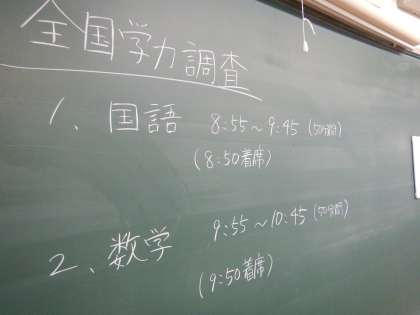 全国学力調査
1、国語 8:55～9:45 (50分間)
(8:50着席)
2、数学 9:55～10:45 (50分間)
(9:50着席)